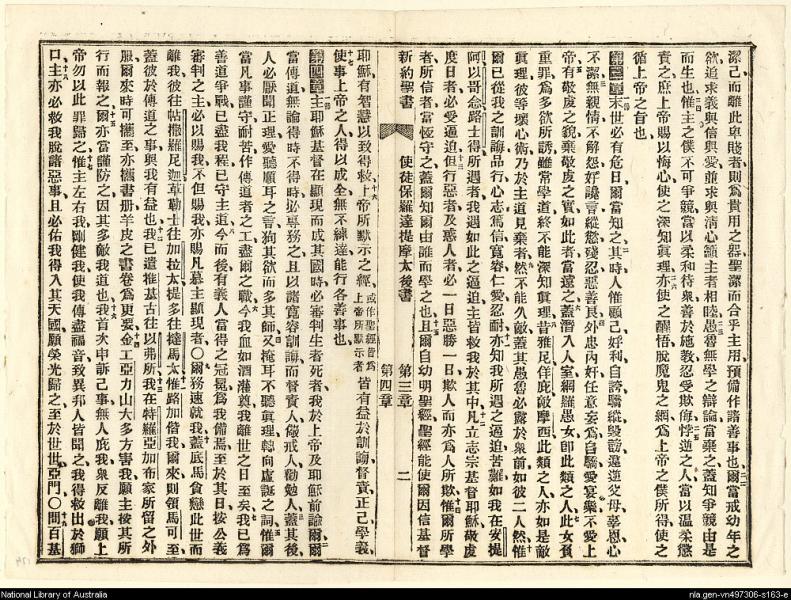 潔己而離此卑賤者則爲貴用之器聖潔而合乎主用預備作諸善事也爾當戒幼年之
欲追求義與信與愛並求與淸心籲主者相睦愚魯無學之辯論當棄之蓋知爭競由是
而生也惟主之僕不可爭競當以柔和待衆善於施敎忍受欺侮悖逆之人當以溫柔懲
責之庶上帝賜以悔心使之深知眞理亦使之醒悟脫魔鬼之網爲上帝之僕所得使之
循上帝之旨也
第三章末世必有危日爾當知之其時人惟顧己好利自誇驕縱毀謗違逆父母辜恩心
不潔無親情不解怨好讒言縱慾殘忍惡善良外忠內奸任意妄爲自驕愛宴樂不愛上
帝有敬虔之貌棄敬虔之實如此者當遠之蓋潛入人室網羅愚女卽此類之人此女負
重罪爲多欲所誘雖常學道終不能深知眞理昔雅尼佯庇敵摩西此類之人亦如是敵
眞理彼等壞心術乃於主道見棄者然不能久敵蓋其愚魯必露於衆前如彼二人然惟
爾已從我之訓誨品行心志篤信寬容仁愛忍耐亦知我所遇之逼迫苦難如我在安提
阿以哥念路士得所遇者我遇如此之逼迫主皆救我於其中凡立志宗基督耶穌敬虔
度日者必受逼迫但行惡者及惑人者必一日惡勝一日欺人而亦爲人所欺惟爾所學
者所信者當恆守之蓋爾知爾由誰而學之也且爾自幼明聖經聖經能使爾因信基督
新約聖書 使徒保羅達提摩太後書 第三章 第四章 二
耶穌有智慧以致得救上帝所默示之經或作聖經皆爲上帝所默示者皆有益於訓誨督責正己學義
使事上帝之人得以成全無不練達能行各善事也
第四章主耶穌基督在顯現而成其國時必審判生者死者我於上帝及耶穌前諭爾爾
當傳道無論得時不得時必專務之且以諸寬容訓誨而督責人儆戒人勸勉人蓋其後
人必厭聞正理愛聽順耳之言狥其欲而多其師又掩耳不聽眞理轉向虛誕之詞惟爾
當凡事謹守耐苦作傳道者之工盡爾之職今我血如酒灌奠我離世之日至矣我已爲
善道爭戰已盡我程已守主道今而後有義人當得之冠冕爲我備焉至於其日按公義
審判之主必以賜我不但賜我亦賜凡慕主顯現者〇爾務速就我蓋底馬貪戀此世而
離我彼往帖撒羅尼迦革勒士往加拉太提多往撻馬太惟路加偕我爾來則領馬可至
蓋彼於傳道之事與我有益也我已遣推基古往以弗所我在特羅亞加布家所留之外
服爾來時可攜至亦攜書册羊皮之書卷爲更要金工亞力山大多方害我願主按其所
行而報之爾亦當謹防之因其多敵我道也我首次申訴己事無人庇我衆反離我願上
帝勿以此罪歸之惟主左右我剛健我使我傳盡福音致異邦人皆聞之我得救出於獅
口主亦必救我脫諸惡事且必佑我得入其天國願榮光歸之至於世世亞們〇問百基
National Library of Australia
nla.gen-vn497306-s163-e